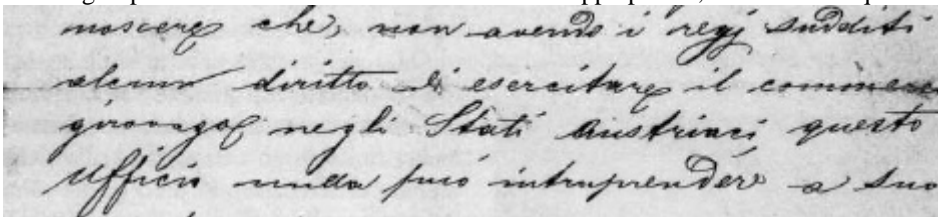 noscere che, non avendo i regj sudditi
alcun diritto di esercitare il commerc
girovago negli Stati Austriaci questo
Ufficio nulla può intraprendere a suo